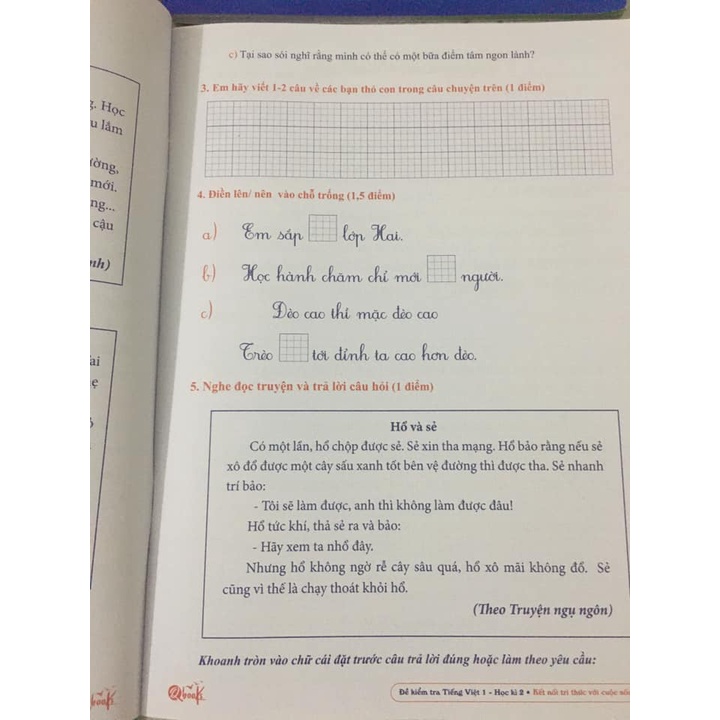 c) Tại sao sói nghĩ rằng mình có thể có một bữa điểm tâm ngon lành?
3. Em hãy viết 1-2 câu về các bạn thỏ con trong câu chuyện trên (1 điểm)
4. Điền lên/ nên vào chỗ trống (1,5 điểm)
a) Em sắp lớp Hai.
b) Học hành chăm chỉ mới người.
c) Đèo cao thì mặc đèo cao
Trèo tới đỉnh ta cao hơn đèo.
5. Nghe đọc truyện và trả lời câu hỏi (1 điểm)
Hổ và sẻ
Có một lần, hổ chộp được sẻ. Sẻ xin tha mạng. Hổ bảo rằng nếu sẻ
xô đổ được một cây sấu xanh tốt bên vệ đường thì được tha. Sẻ nhanh
trí bảo:
- Tôi sẽ làm được, anh thì không làm được đâu!
Hổ tức khí, thả sẻ ra và bảo:
- Hãy xem ta nhổ đây.
Nhưng hổ không ngờ rễ cây sâu quá, hổ xô mãi không đổ. Sẻ
cũng vì thế là chạy thoát khỏi hổ.
(Theo Truyện ngụ ngôn)
Khoanh tròn vào chữ cái đặt trước câu trả lời đúng hoặc làm theo yêu cầu:
Đề kiểm tra Tiếng Việt 1 - Học kì 2 • Kết nối tri thức với cuộc
g. Học
u lắm
ường,
mới.
ng...
cậu